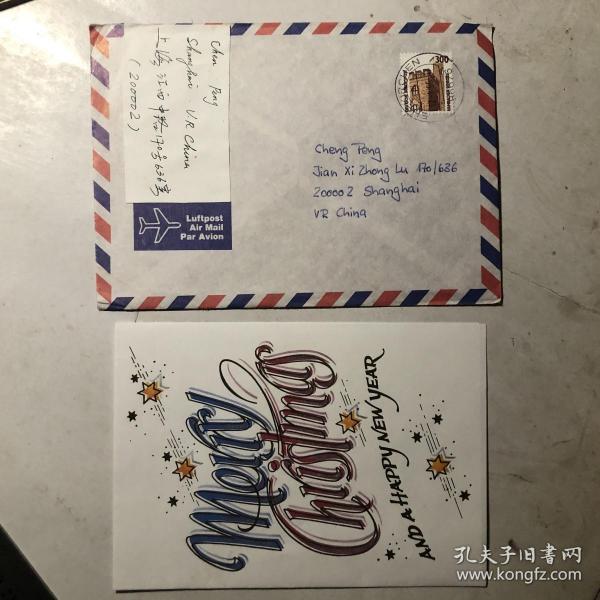 Chen Peng
Shanghai VR China
上海江西中路170号636室
(200002)
300
Luftpost
Air Mail
Par Avion
Cheng Peng
Jian Xi Zhong Lu 170/636
200002 Shanghai
VR China
Merry
Christmas
AND A HAPPY NEW YEAR
孔夫子旧书网
www.kongfz.com